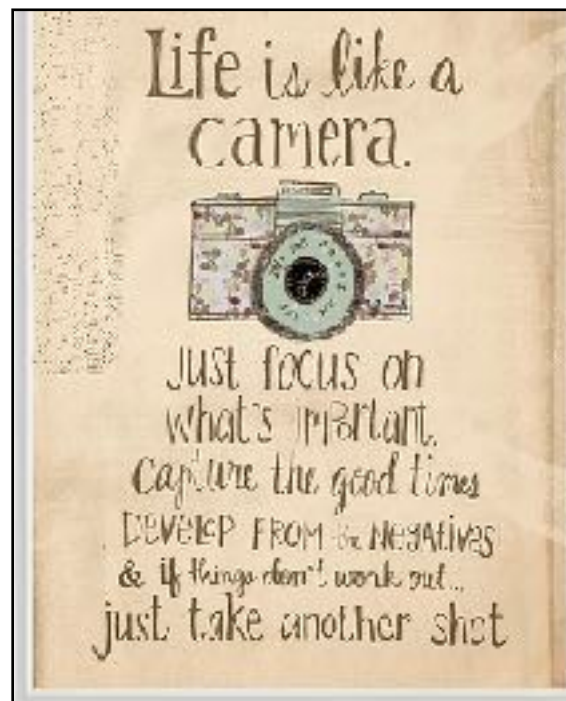 Life is like a
camera.
just focus on
what's important.
capture the good times
DEVELOP FROM the NEGATIVES
& if things don't work out...
just take another shot